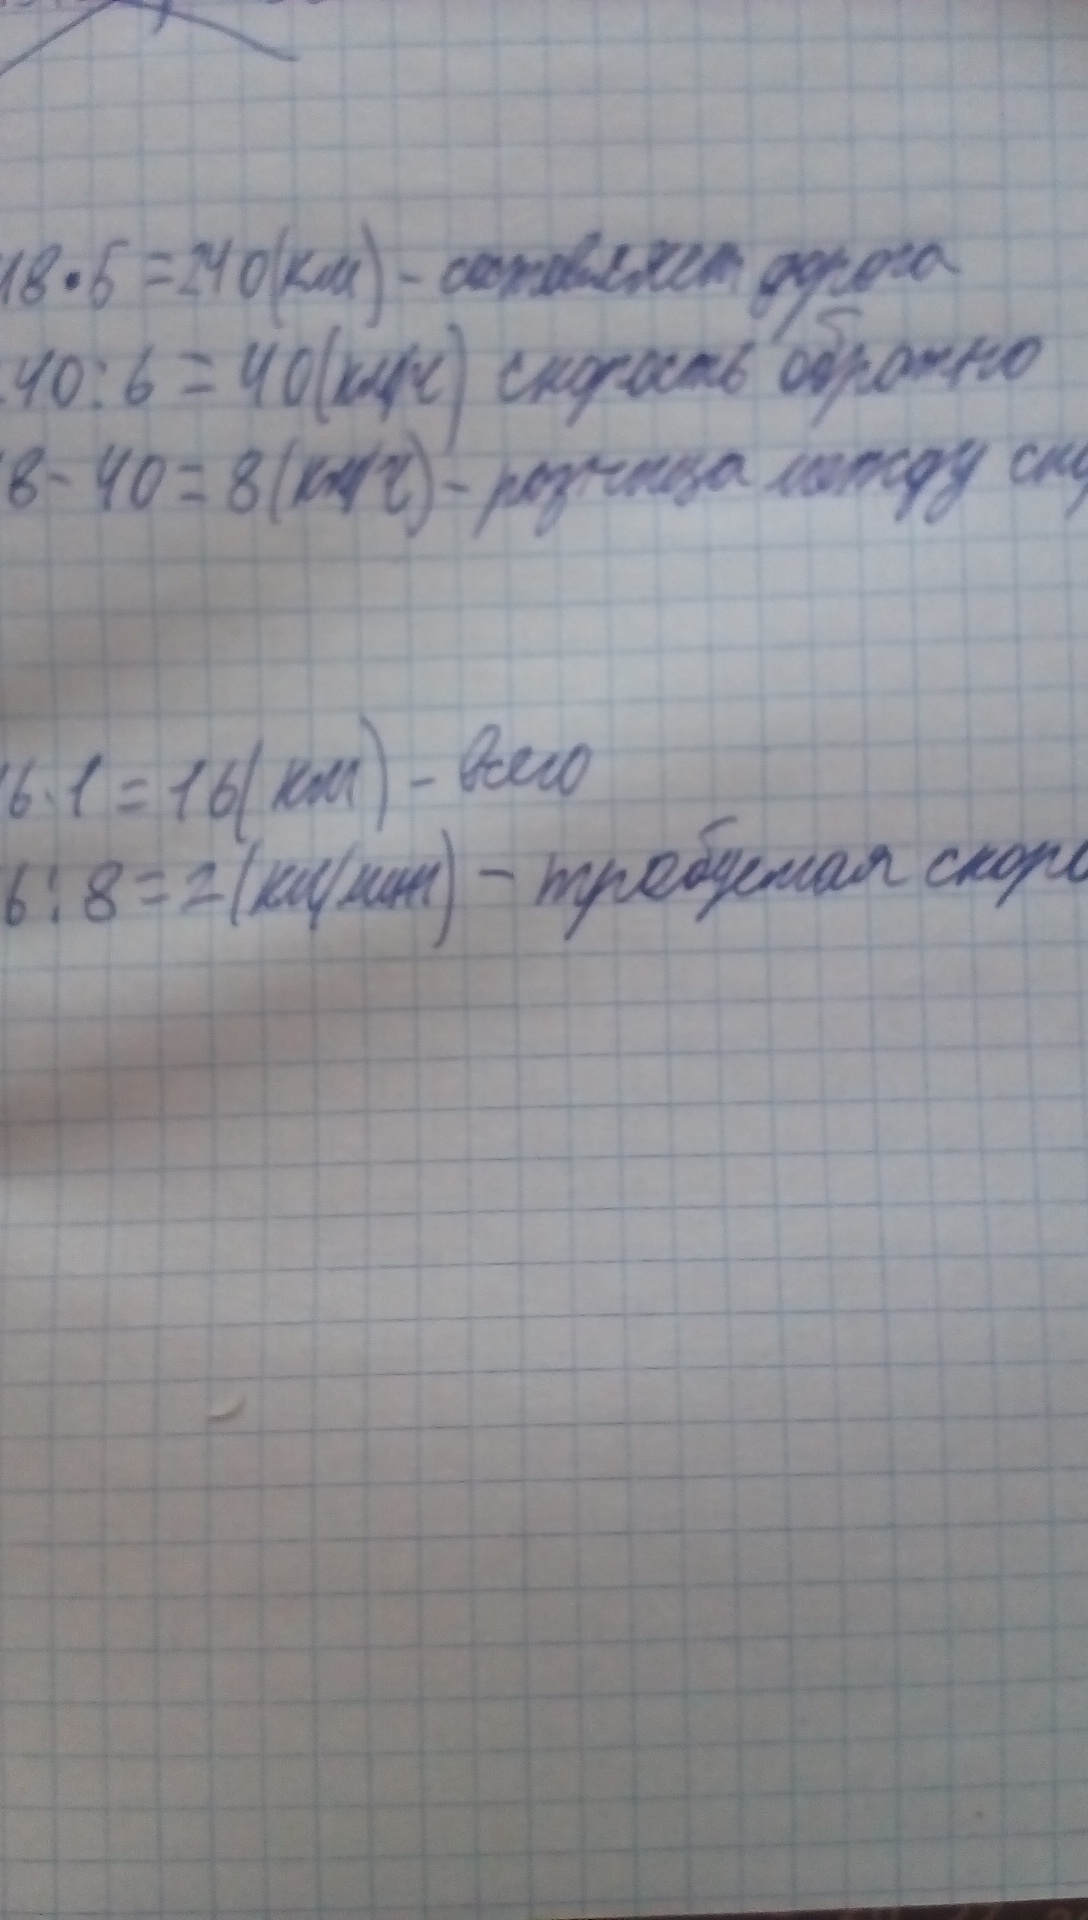 48•5=240(км)-составляет дорога
40:6=40(км/ч) скорость обратно
8-40=8(км/ч)-разница между ско
16·1=16(км)-всего
6:8=2(км/мин)-требуемая скоро